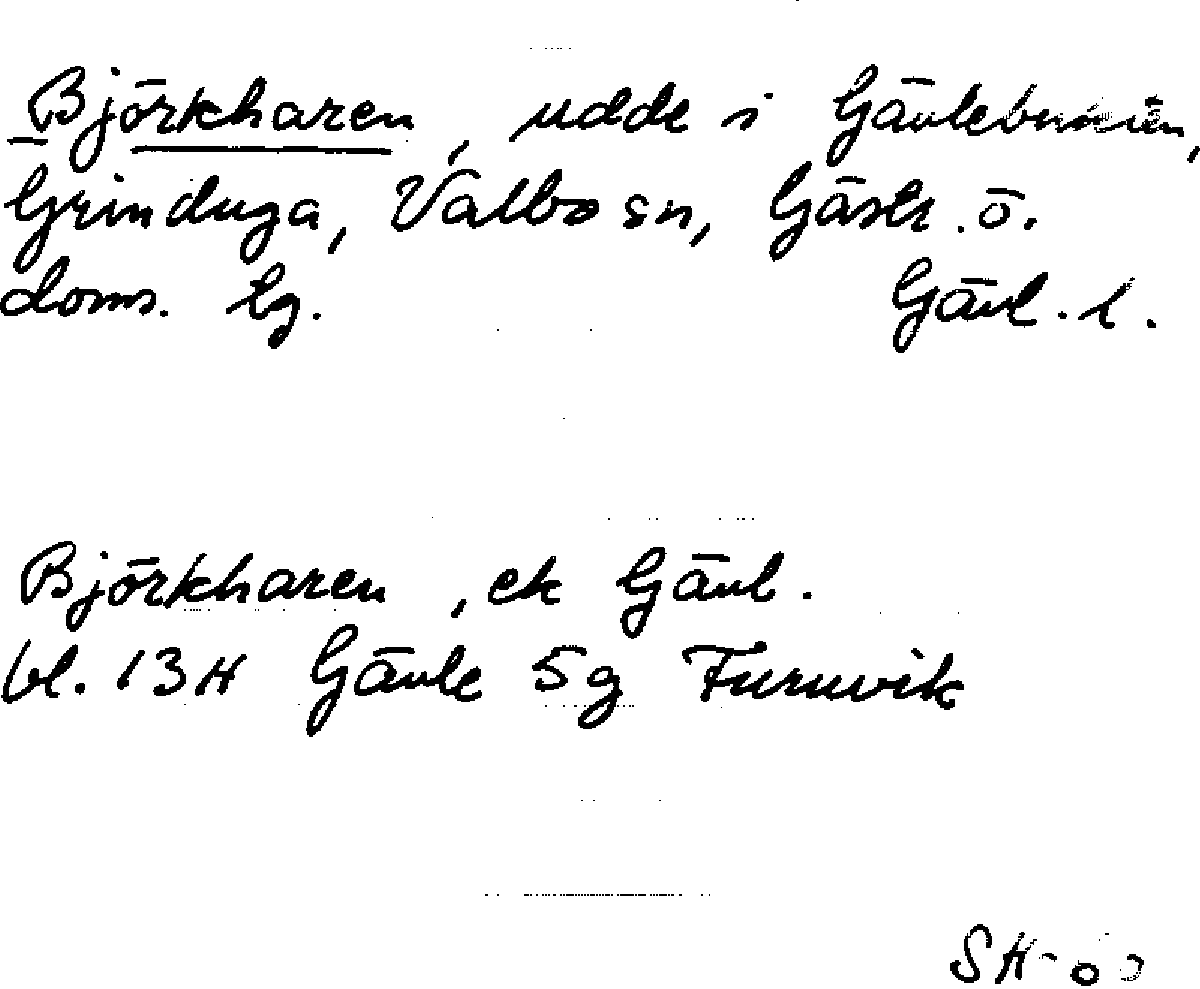 Björkharen, udde i Gävlebukten,
Grinduga, Valbo sn, Gästr. ö.
doms. lg. Gävl. l.
Björkharen, ek Gävl.
bl. 13H Gävle 5g Furuvik